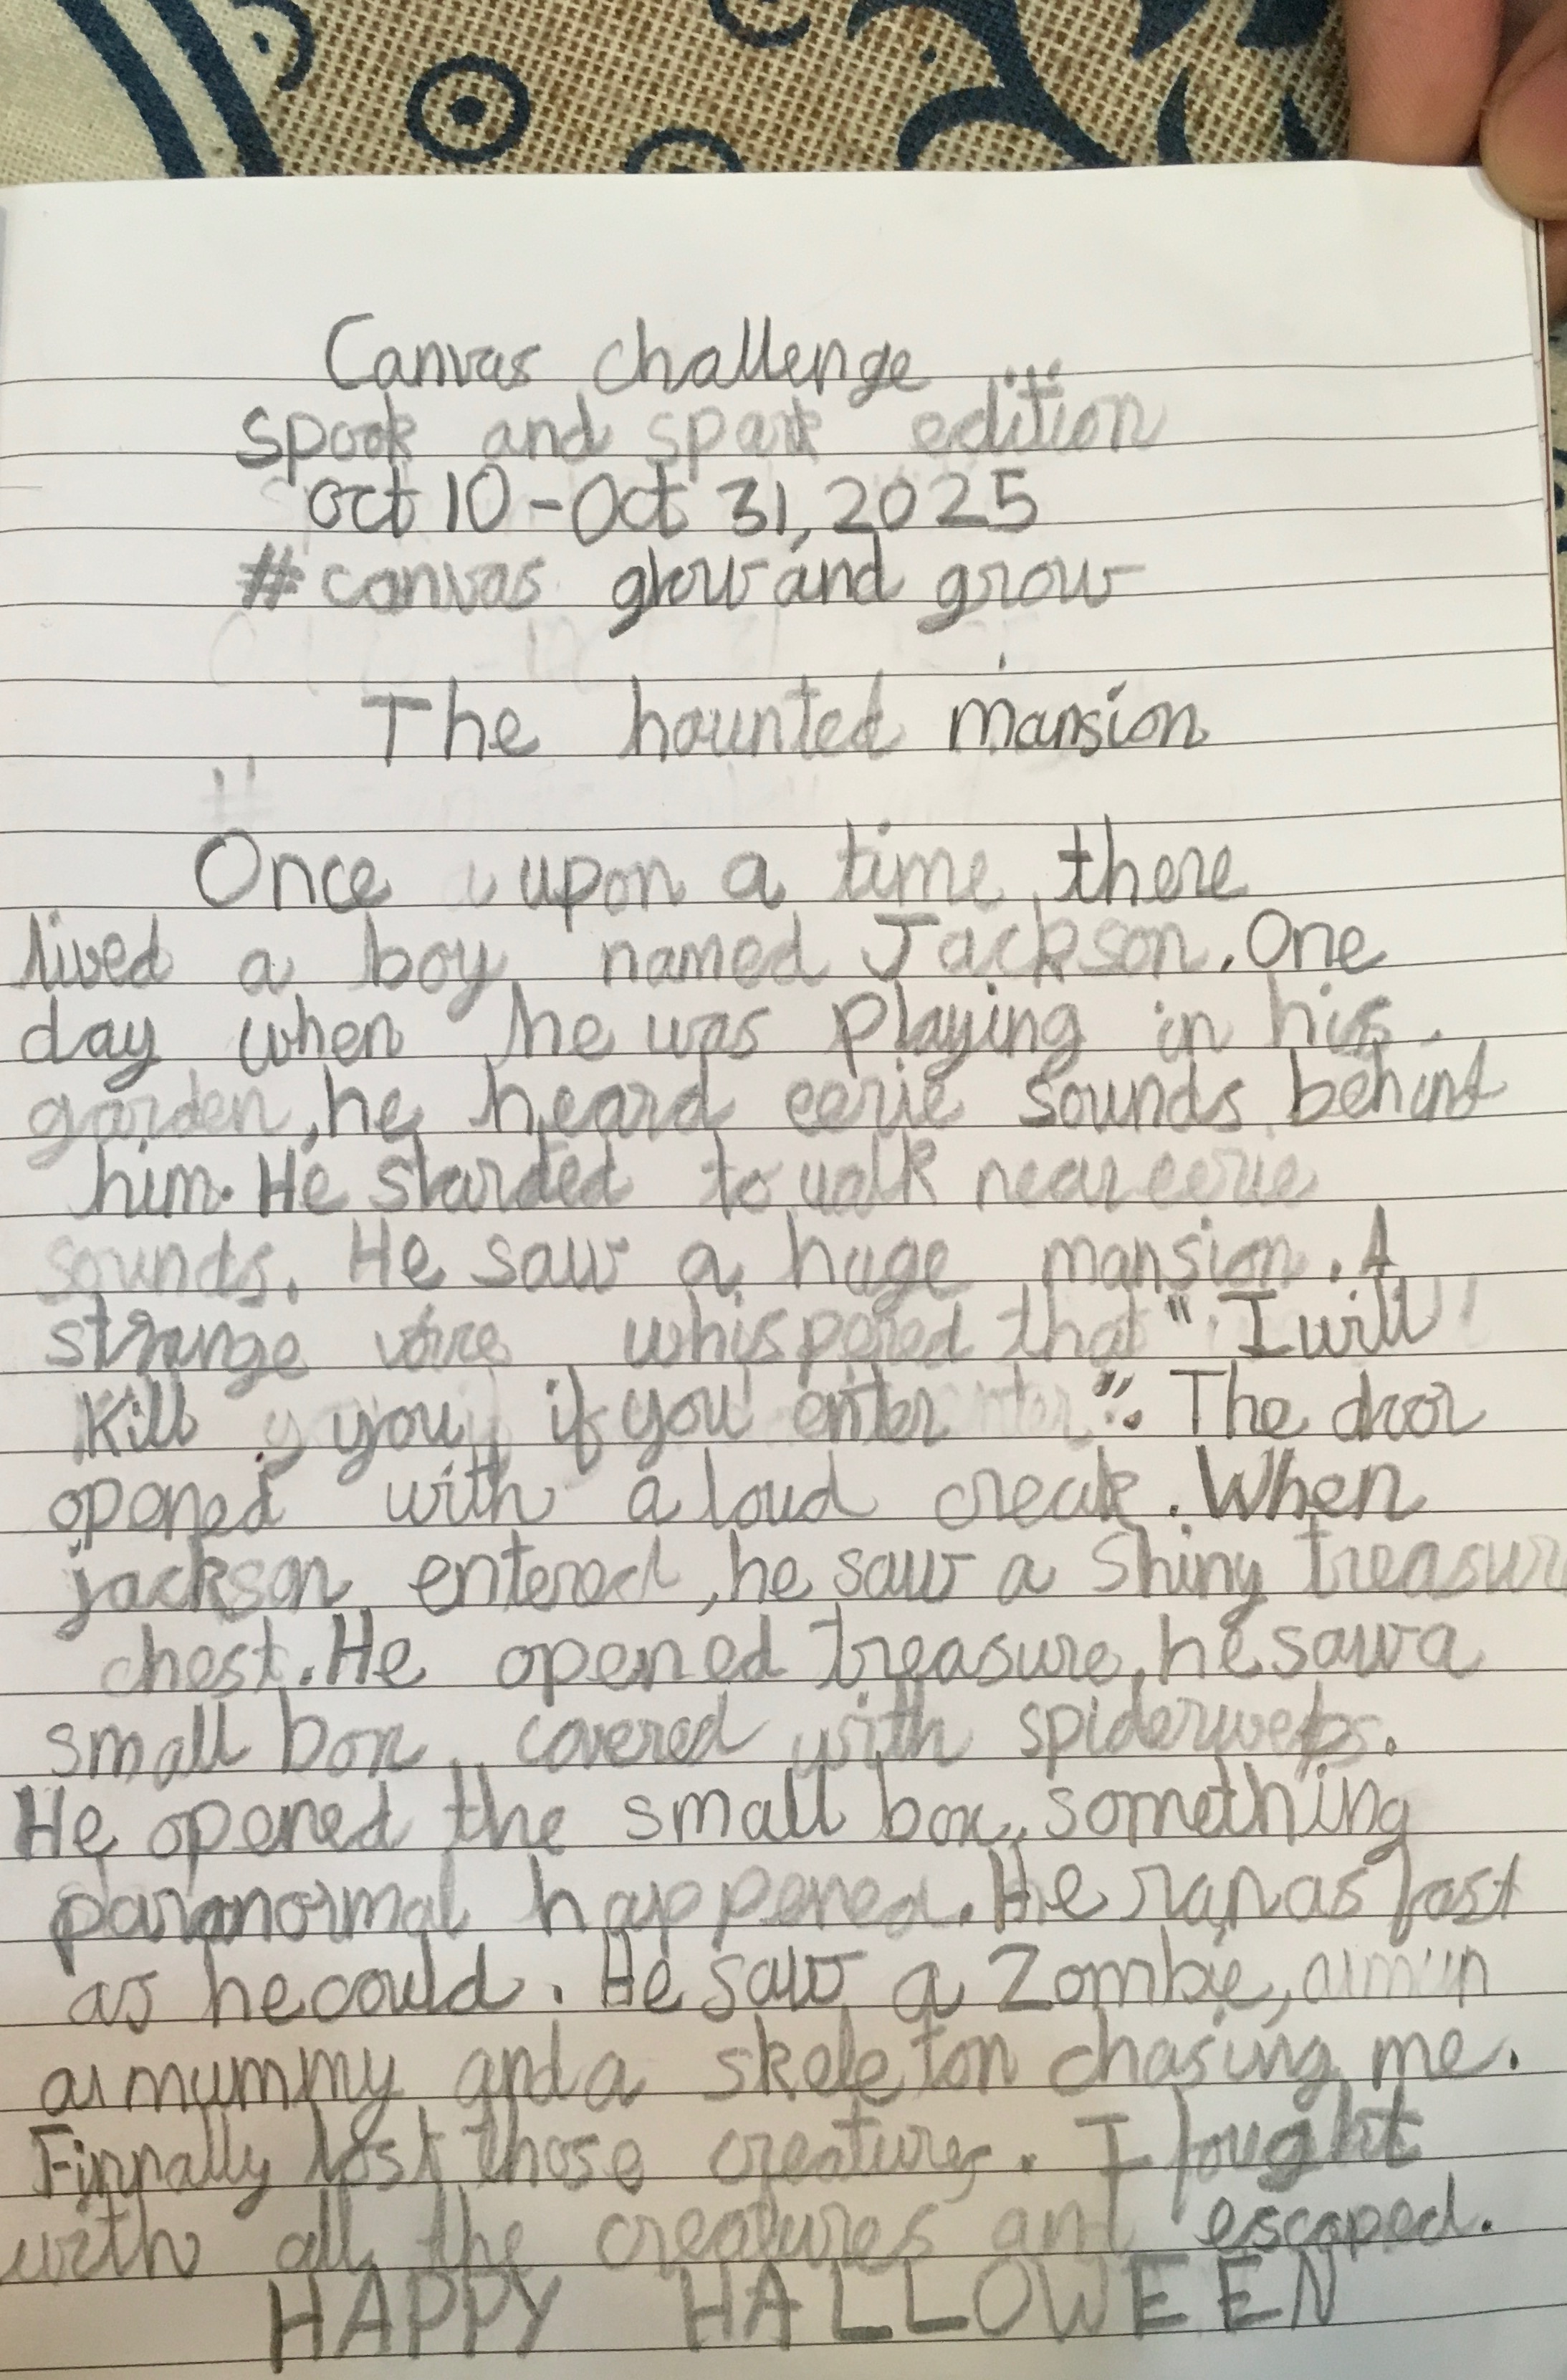 Canvas challenge
spook and spark edition
oct 10 - Oct 31, 2025
# canvas glow and grow
The haunted mansion
Once upon a time, there
lived a boy named Jackson. One
day when he was playing in his
garden, he heard eerie sounds behind
him. He starded to walk near eerie
sounds. He saw a huge mansion. A
strange voice whispered that " I will
Kill you if you enter ". The door
opened with a loud creak. When
jackson entered, he saw a Shiny treasur
chest. He opened treasure, he saw a
small box covered with spiderwebs.
He opened the small box, something
paranormal happened. He ran as fast
as he could. He saw a Zombie,
a mummy and a skeleton chasing me.
Finnally lost those creatures. I fought
with all the creatures and escaped.
HAPPY HALLOWEEN